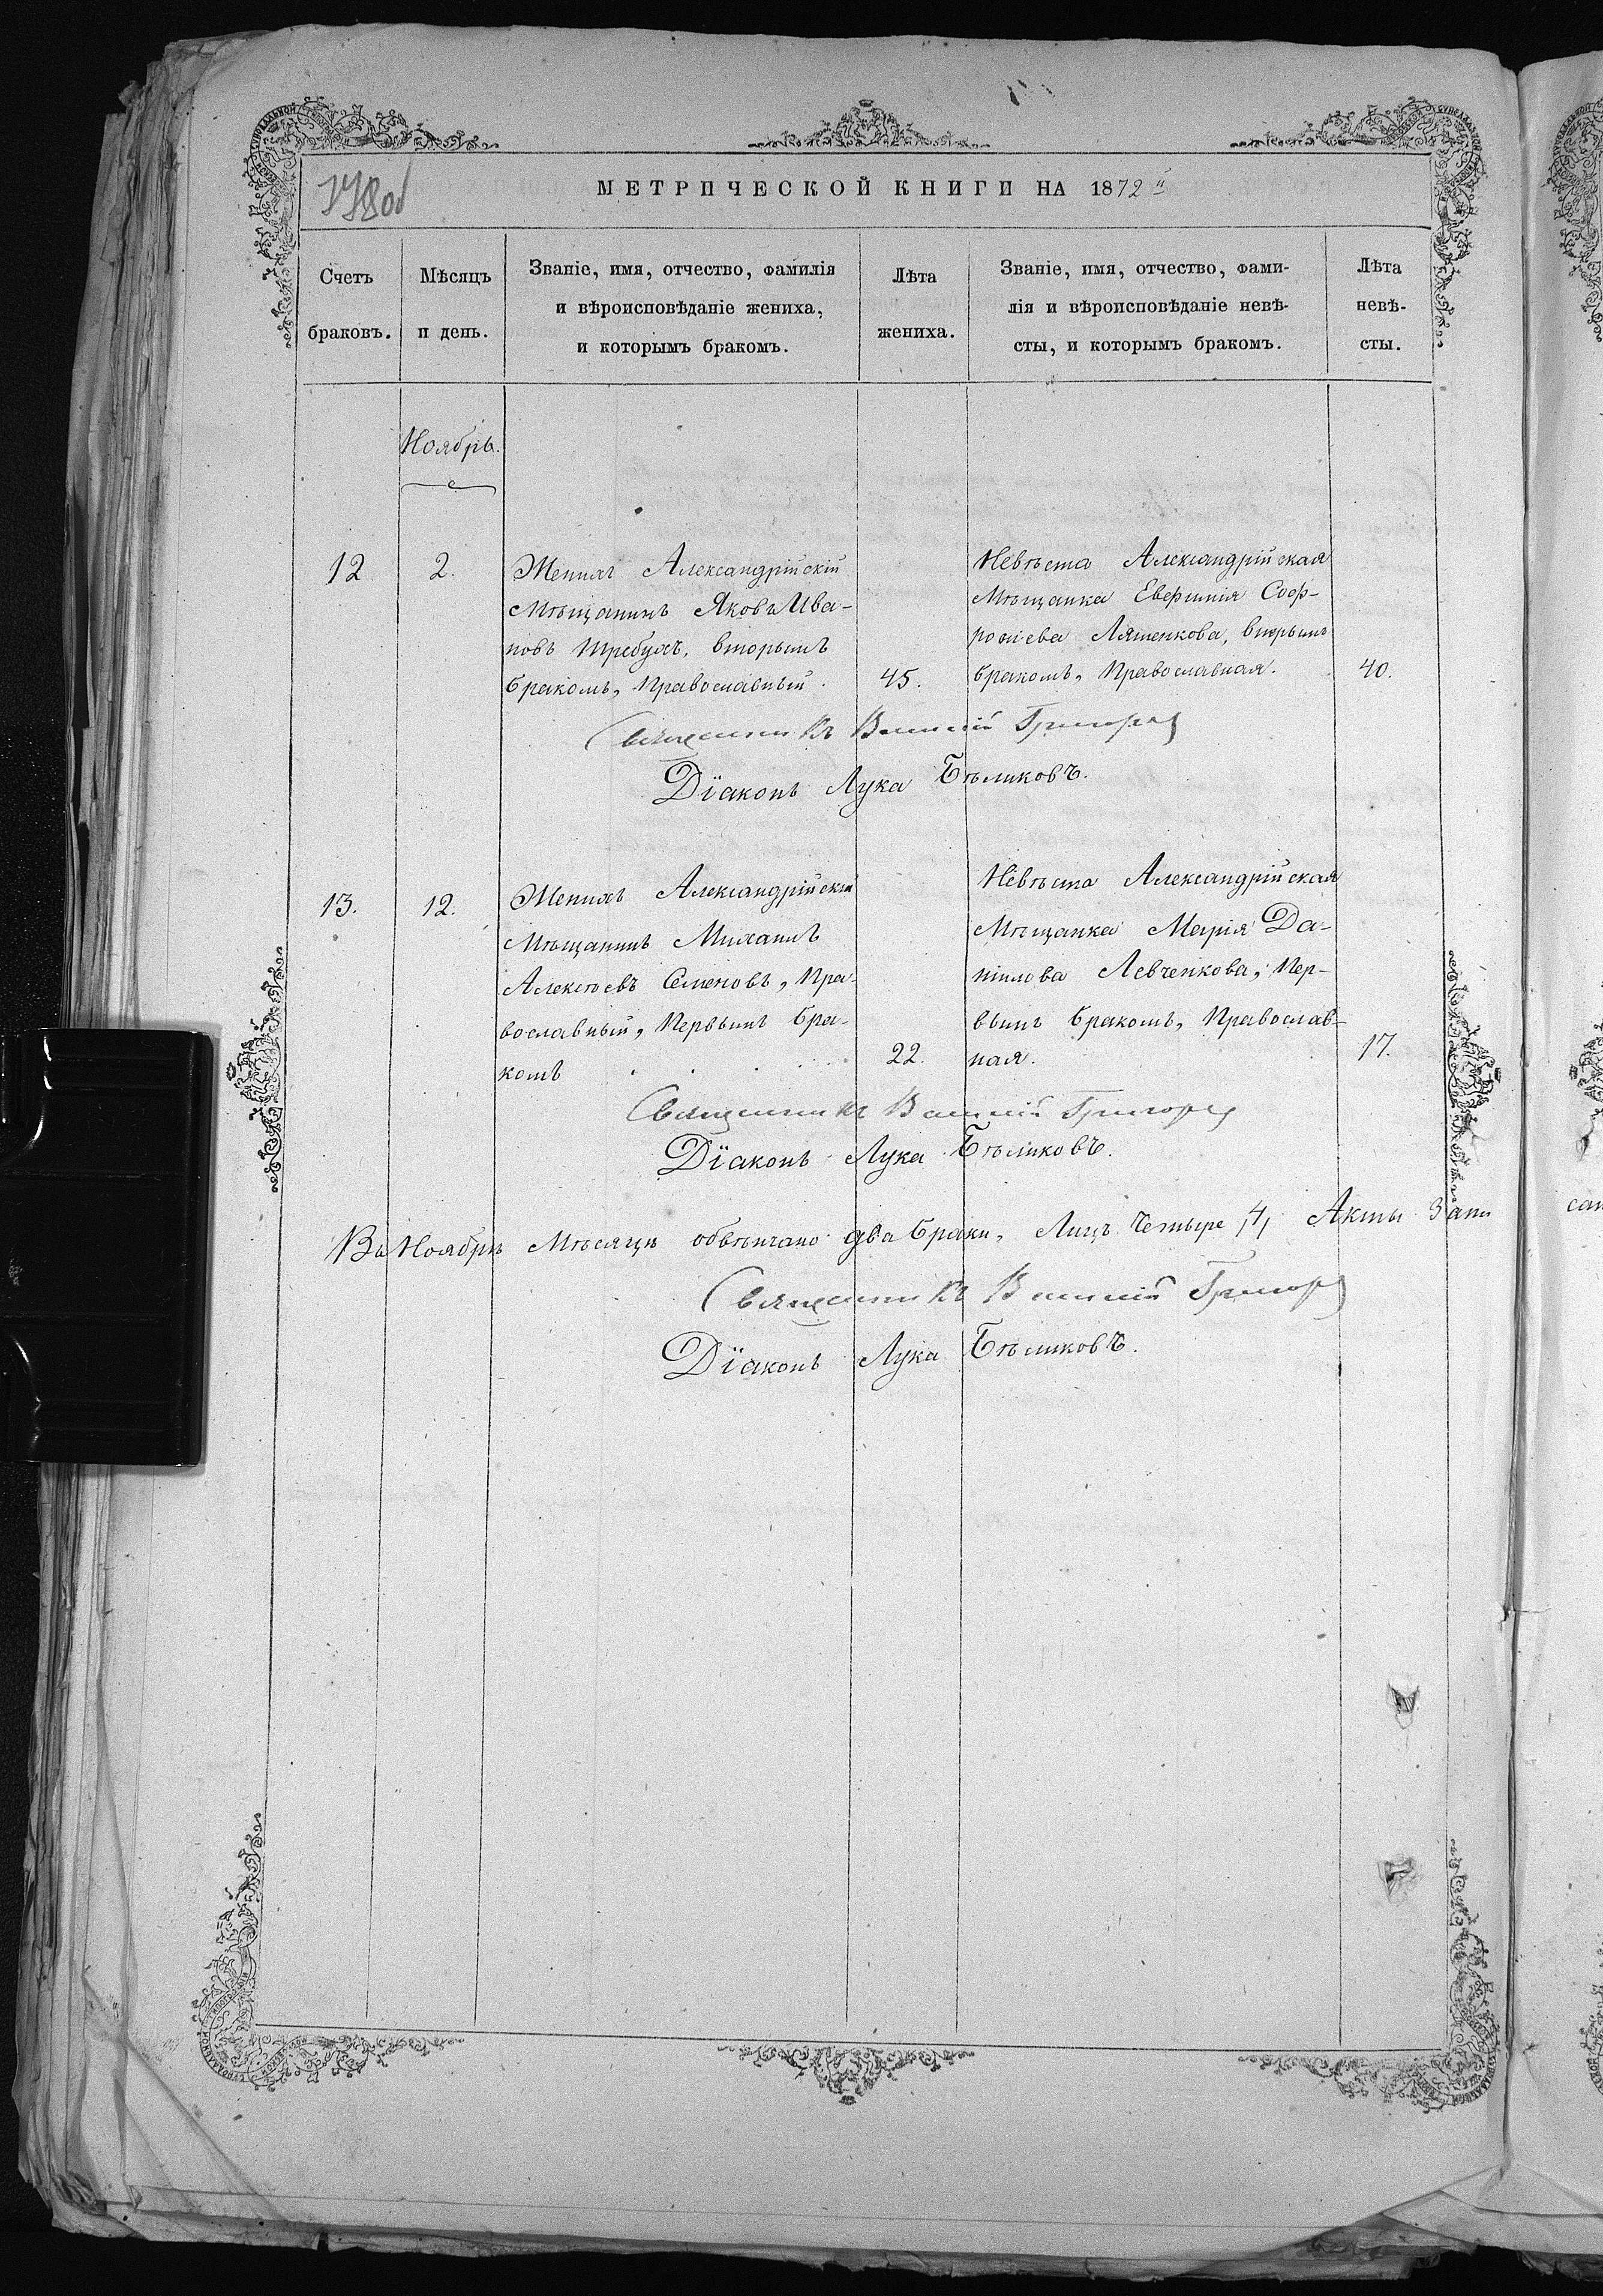 МЕТРИЧЕСКОЙ КНИГИ НА 1872 й
Счетъ браковъ.
Мѣсяцъ и день.
Званіе, имя, отчество, фамилія
и вѣроисповѣданіе жениха,
и которымъ бракомъ.
Лѣта жениха.
Званіе, имя, отчество, фами-
лія и вѣроисповѣданіе невѣ-
сты, и которымъ бракомъ.
Лѣта невѣ-
сты.
Ноябрь.
12
2.
Женихъ Александрійскій
Мѣщанинъ Яковъ Ива-
новъ Требухъ, вторымъ
бракомъ, Православный.
45.
Невѣста Александрійская
Мѣщанка Евфимія Соф-
роніева Ляшенкова, вторымъ
бракомъ, Православная.
40.
Священникъ Василій
Діаконъ Лука Бѣликовъ.
13.
12.
Женихъ Александрійскій
Мѣщанинъ Михаилъ
Алексѣевъ Семеновъ, Пра-
вославный, Первымъ бра-
комъ
22.
Невѣста Александрійская
Мѣщанка Марія Да-
нилова Левченкова, Пер-
вымъ бракомъ, Православ-
ная.
17.
Священникъ Василій
Діаконъ Лука Бѣликовъ.
Въ Ноябрѣ Мѣсяцѣ обвѣнчано два брака, Лицъ Четыре 4, Акты Запи
Священникъ Василій
Діаконъ Лука Бѣликовъ.